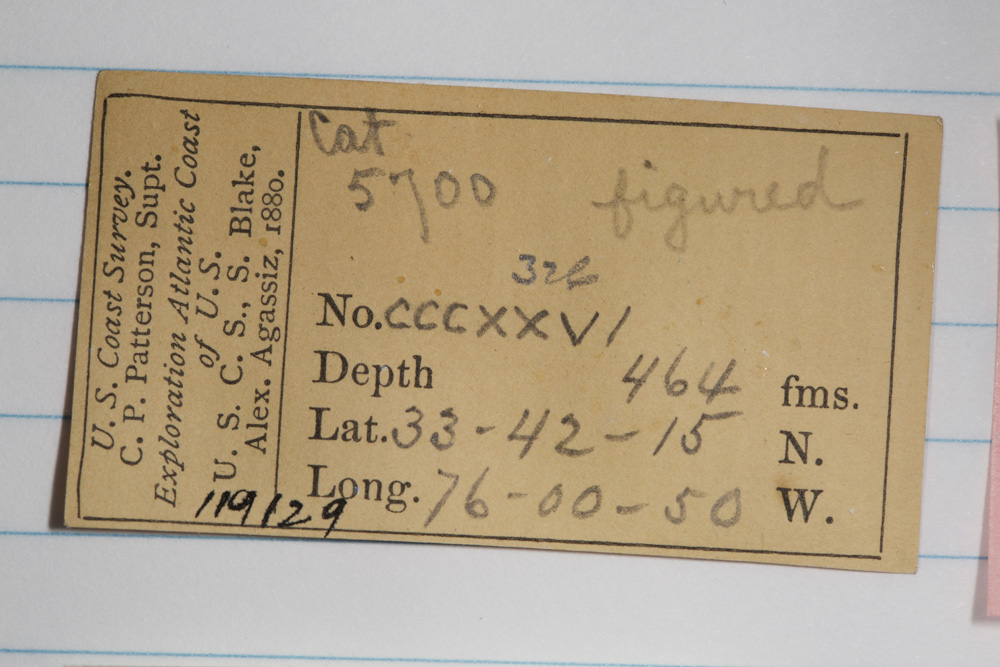 U. S. Coast Survey.
C. P. Patterson, Supt.
Exploration Atlantic Coast
of U. S.
U. S. C. S., S. Blake,
Alex. Agassiz, 1880.
119129
Cat
5700
figured
326
No. CCCXXVI
Depth 464 fms.
Lat. 33-42-15 N.
Long. 76-00-50 W.